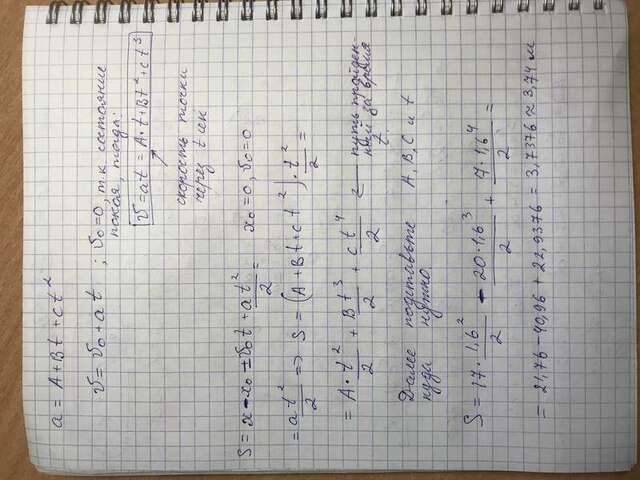 a = A + Bt + ct²
v = v₀ + at ; v₀=0, т.к состояние
покоя, тогда:
v = at = A·t + Bt² + ct³
скорость точки
через t сек
S = x - x₀ = v₀t + at²/2 = x₀ = 0, v₀ = 0
= at²/2 => S = (A + Bt + ct²)·t²/2 =
= A·t²/2 + Bt³/2 + ct⁴/2 ← путь пройден-
ный за время
t.
Далее подставьте A, B, C и t
куда нужно
S = 17·1,6²/2 - 20·1,6³/2 + 7·1,6⁴/2 =
= 21,76 - 40,96 + 22,9376 = 3,7376 ≈ 3,74 м